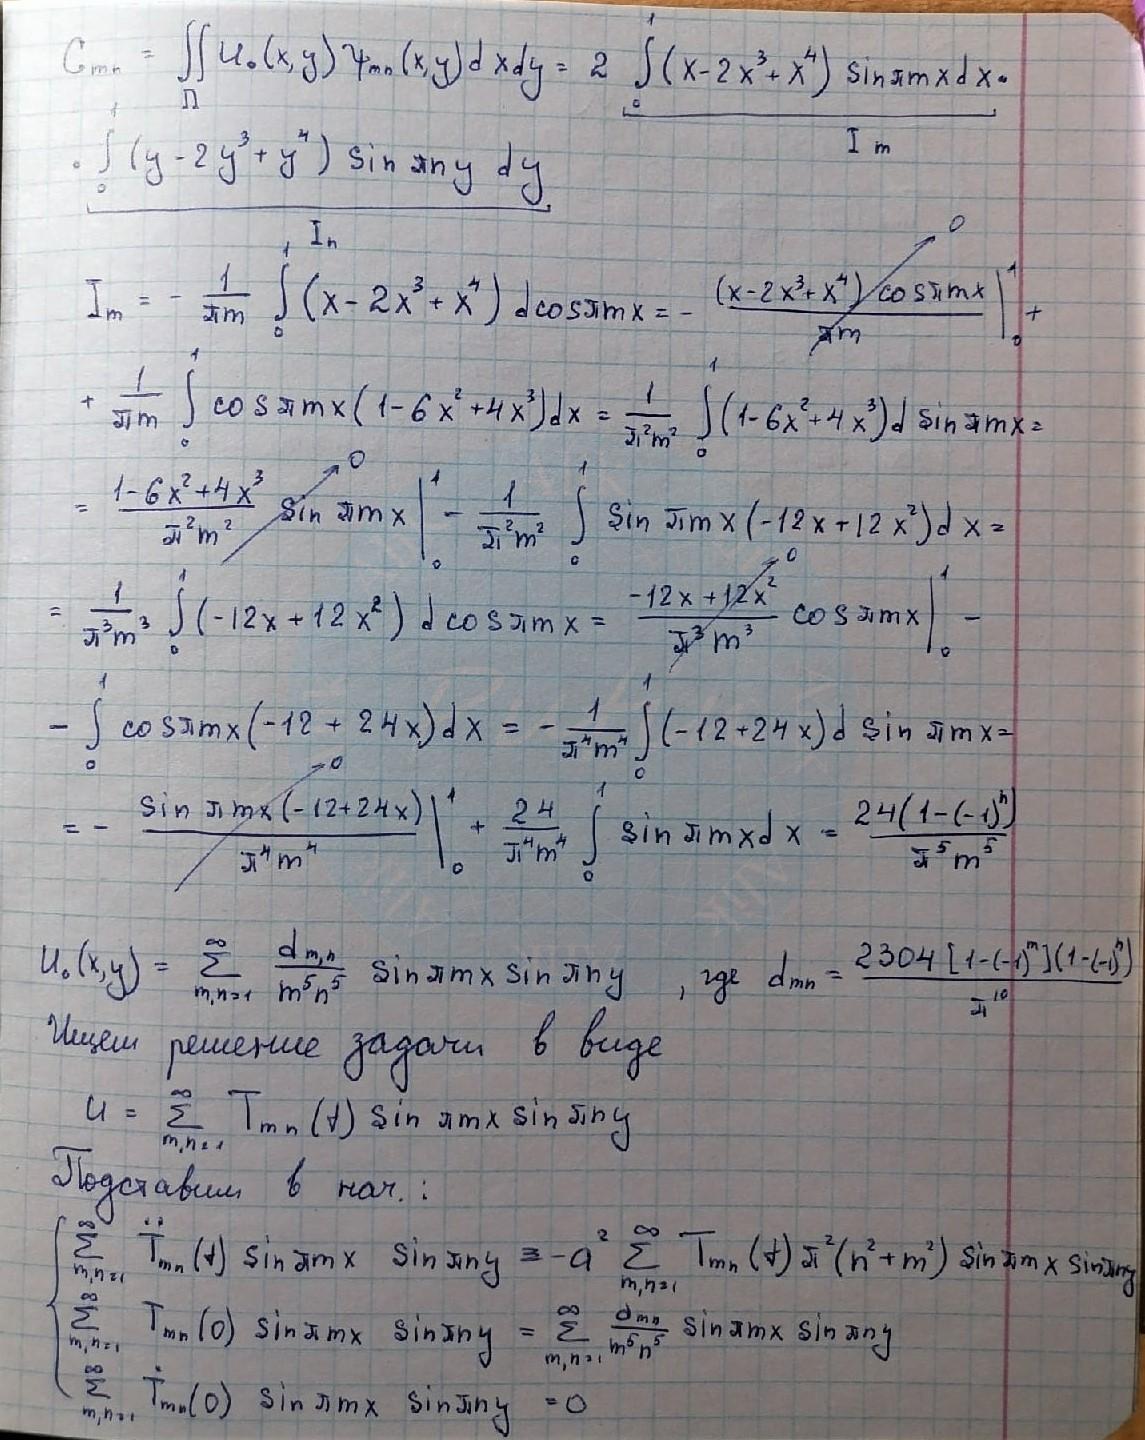 C_mn = ∬_Π u₀(x,y) ψ_mn(x,y) dx dy = 2 ∫₀¹ (x - 2x³ + x⁴) sin πmx dx ·
I_m
· ∫₀¹ (y - 2y³ + y⁴) sin πny dy
I_n
I_m = - 1/(πm) ∫₀¹ (x - 2x³ + x⁴) d cos πmx = - (x - 2x³ + x⁴) cos πmx / (πm) |₀¹ → 0 +
+ 1/(πm) ∫₀¹ cos πmx (1 - 6x² + 4x³) dx = 1/(π²m²) ∫₀¹ (1 - 6x² + 4x³) d sin πmx =
= (1 - 6x² + 4x³)/(π²m²) sin πmx |₀¹ → 0 - 1/(π²m²) ∫₀¹ sin πmx (-12x + 12x²) dx =
= 1/(π³m³) ∫₀¹ (-12x + 12x²) d cos πmx = (-12x + 12x²)/(π³m³) cos πmx |₀¹ → 0 -
- ∫₀¹ cos πmx (-12 + 24x) dx = - 1/(π⁴m⁴) ∫₀¹ (-12 + 24x) d sin πmx =
= - sin πmx (-12 + 24x)/(π⁴m⁴) |₀¹ → 0 + 24/(π⁴m⁴) ∫₀¹ sin πmx dx = 24(1 - (-1)ⁿ)/(π⁵m⁵)
u₀(x,y) = Σ_{m,n=1}^∞ d_{m,n}/(m⁵n⁵) sin πmx sin πny , где d_mn = 2304 [1 - (-1)^m](1 - (-1)ⁿ)/π¹⁰
Ищем решение задачи в виде
u = Σ_{m,n=1}^∞ T_mn(t) sin πmx sin πny
Подставим в нач.:
Σ_{m,n=1}^∞ T̈_mn(t) sin πmx sin πny = -a² Σ_{m,n=1}^∞ T_mn(t) π²(n² + m²) sin πmx sin πny
Σ_{m,n=1}^∞ T_mn(0) sin πmx sin πny = Σ_{m,n=1}^∞ d_mn/(m⁵n⁵) sin πmx sin πny
Σ_{m,n=1}^∞ Ṫ_mn(0) sin πmx sin πny = 0